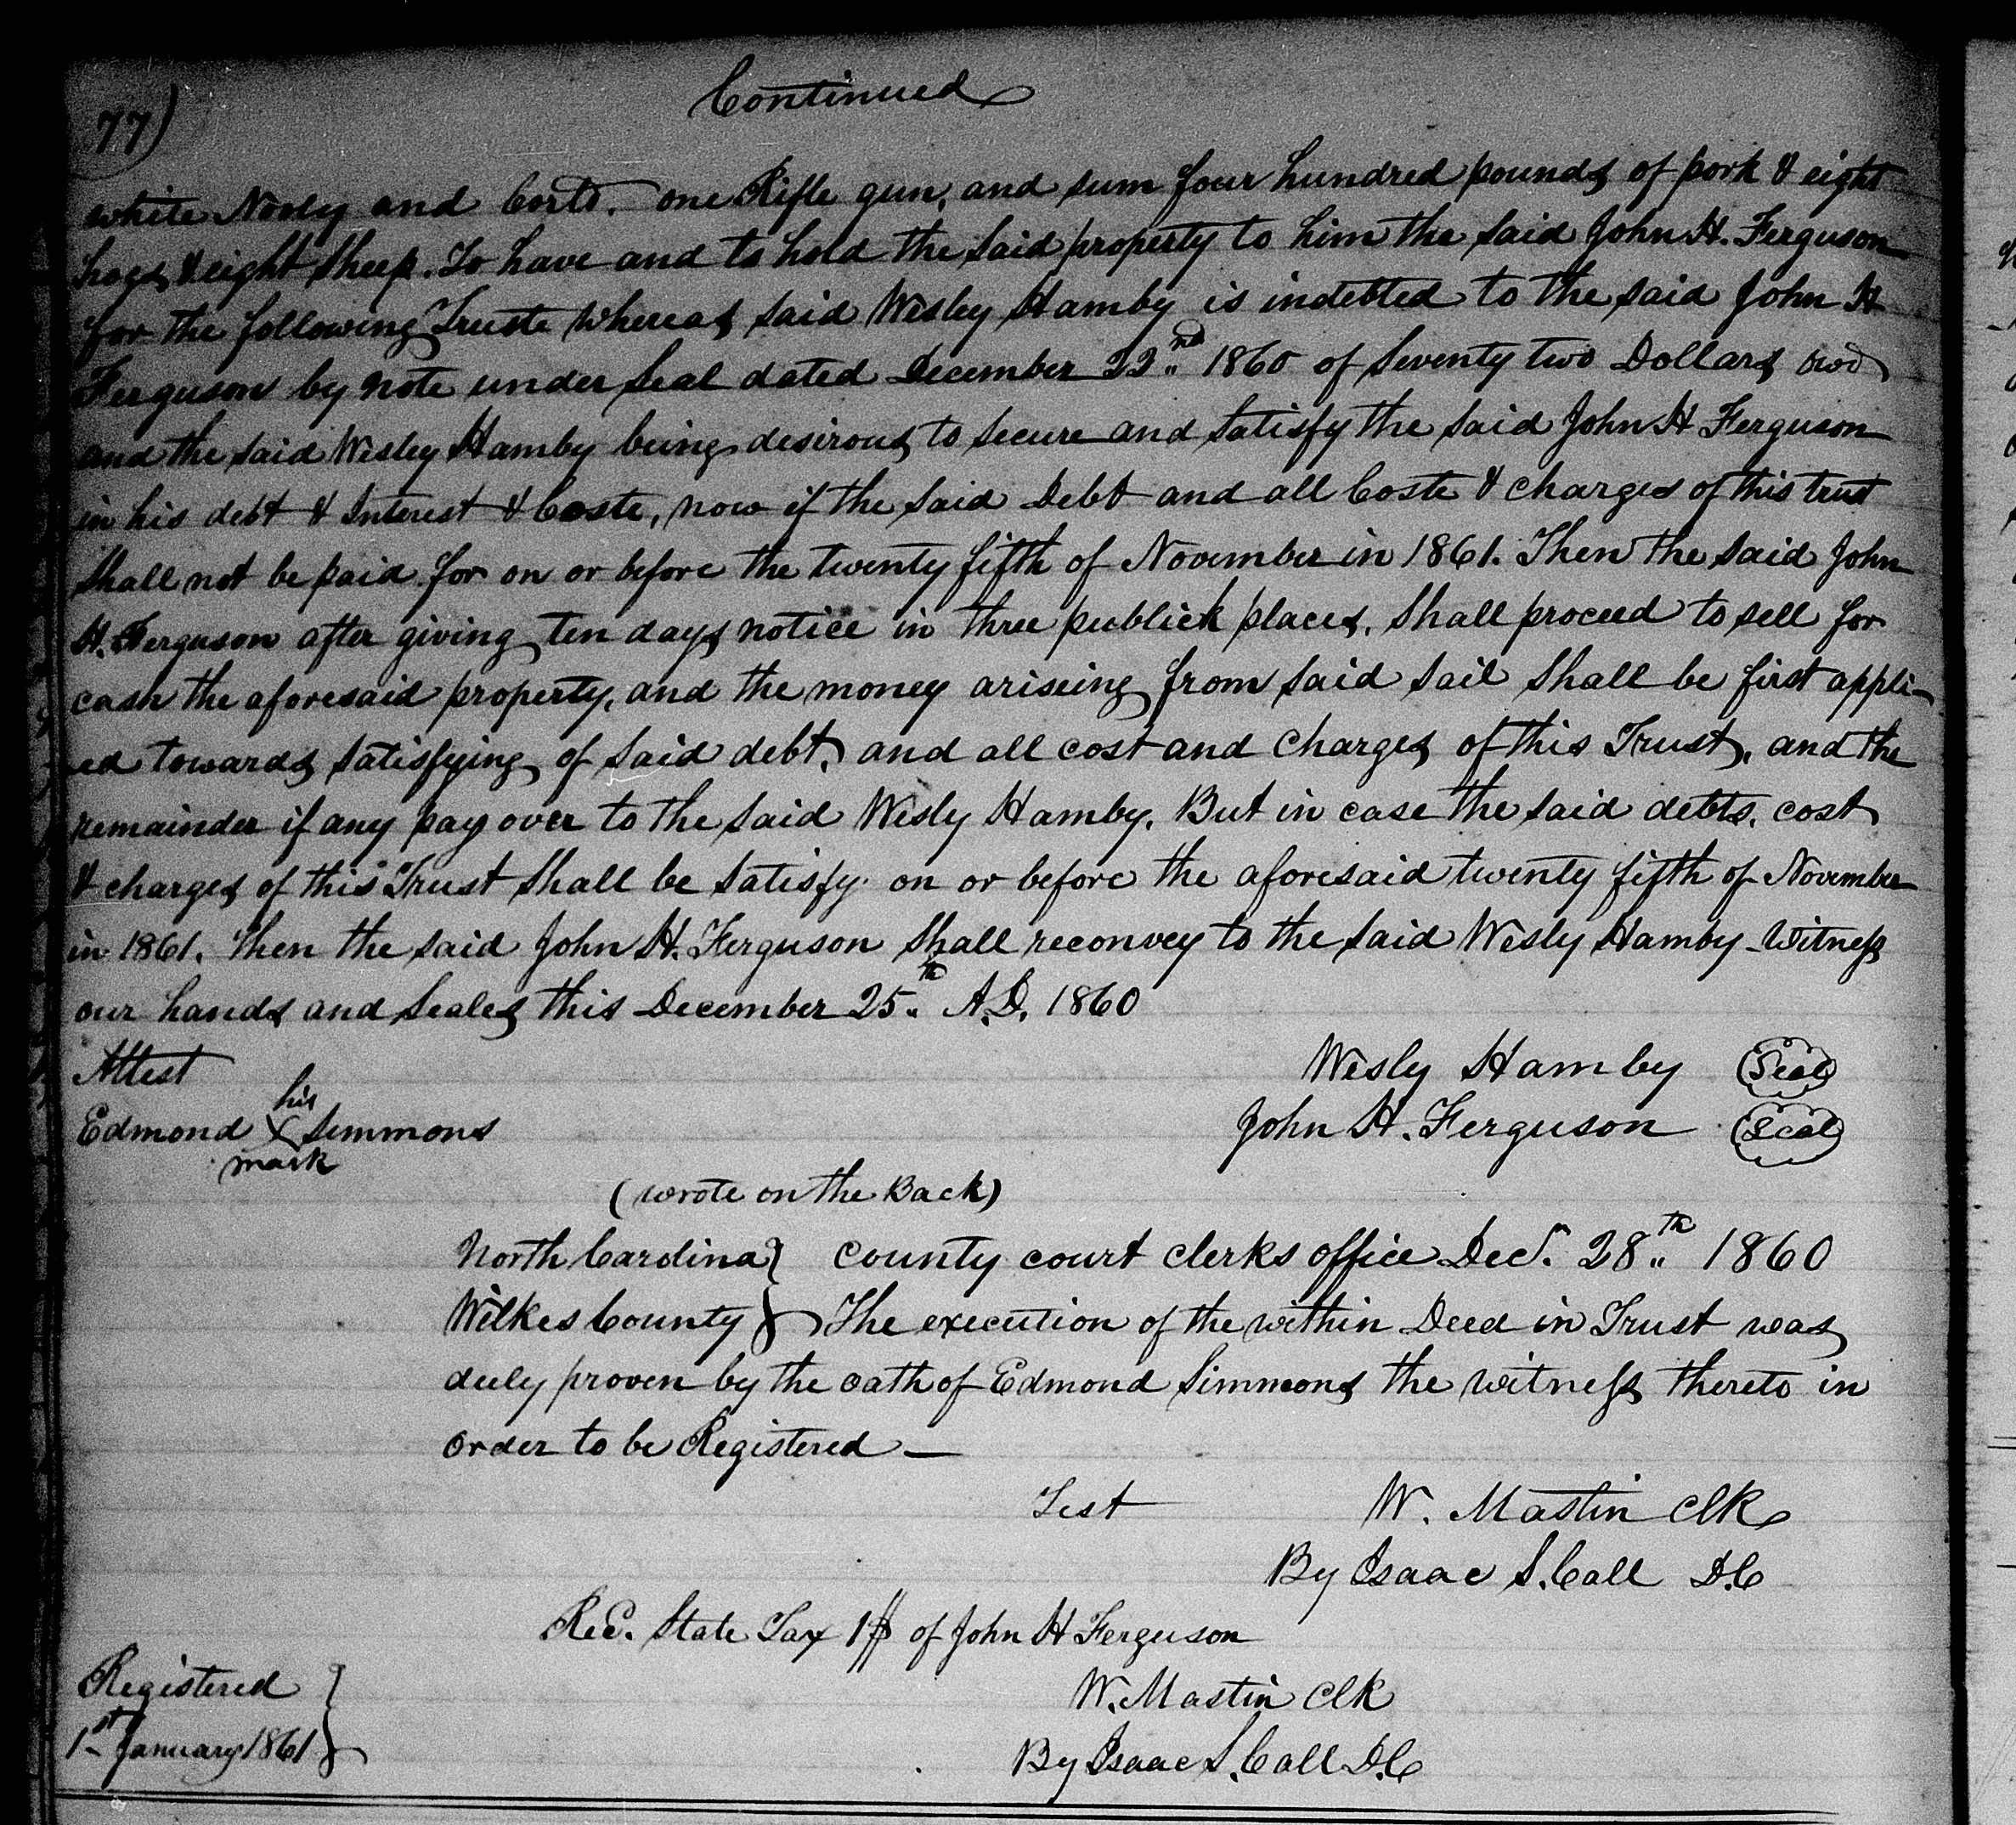 Continued
77)
white Nosey and Corts. one Rifle gun, and sum four hundred pounds of pork & eight
hogs, & eight Sheep. To have and to hold the said property to him the said John H. Ferguson
for the following Truste Whereas said Wesley Hamby is indebted to the said John H
Ferguson by note under Seal dated December 22nd 1860 of Seventy two Dollars
and the said Wesley Hamby being desirous to secure and satisfy the said John H Ferguson
in his debt & Interest & Coste, now if the said Debt and all Coste & charges of this trust
Shall not be paid for on or before the twenty fifth of November in 1861. Then the said John
H. Ferguson after giving ten days notice in three publick places, Shall proceed to sell for
cash the aforesaid property, and the money ariseing from said sail Shall be first appli-
ed towards satisfying of said debt, and all cost and charges of this Trust, and the
remainder if any pay over to the said Wesly Hamby. But in case the said debts, cost
& charges of this Trust Shall be satisfy on or before the aforesaid twenty fifth of November
in 1861. Then the said John H. Ferguson Shall reconvey to the said Wesly Hamby Witness
our hands and Seales this December 25th A.D. 1860
Attest
Wesly Hamby Seal
his
Edmond X Simmons
mark
John H. Ferguson Seal
(wrote on the Back)
North Carolina } County court clerks office Dec. 28th 1860
Wilkes County } The execution of the within Deed in Trust was
duly proven by the oath of Edmond Simmons the witness thereto in
order to be Registered —
Test W. Mastin Clk
By Isaac S. Call D.C
Rec. State Tax 1$ of John H Ferguson
Registered }
W. Mastin Clk
1st January 1861 }
By Isaac S. Call D.C